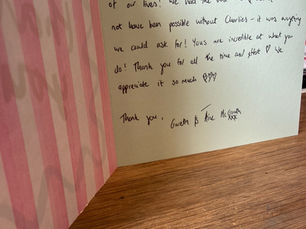 of our lives! We had the
not have been possible without Charlies - it was anything
we could ask for! Yous are incredible at what you
do! Thank you for all the time and effort ♡ We
appreciate it so much
Thank you,
Gareth &
xxx